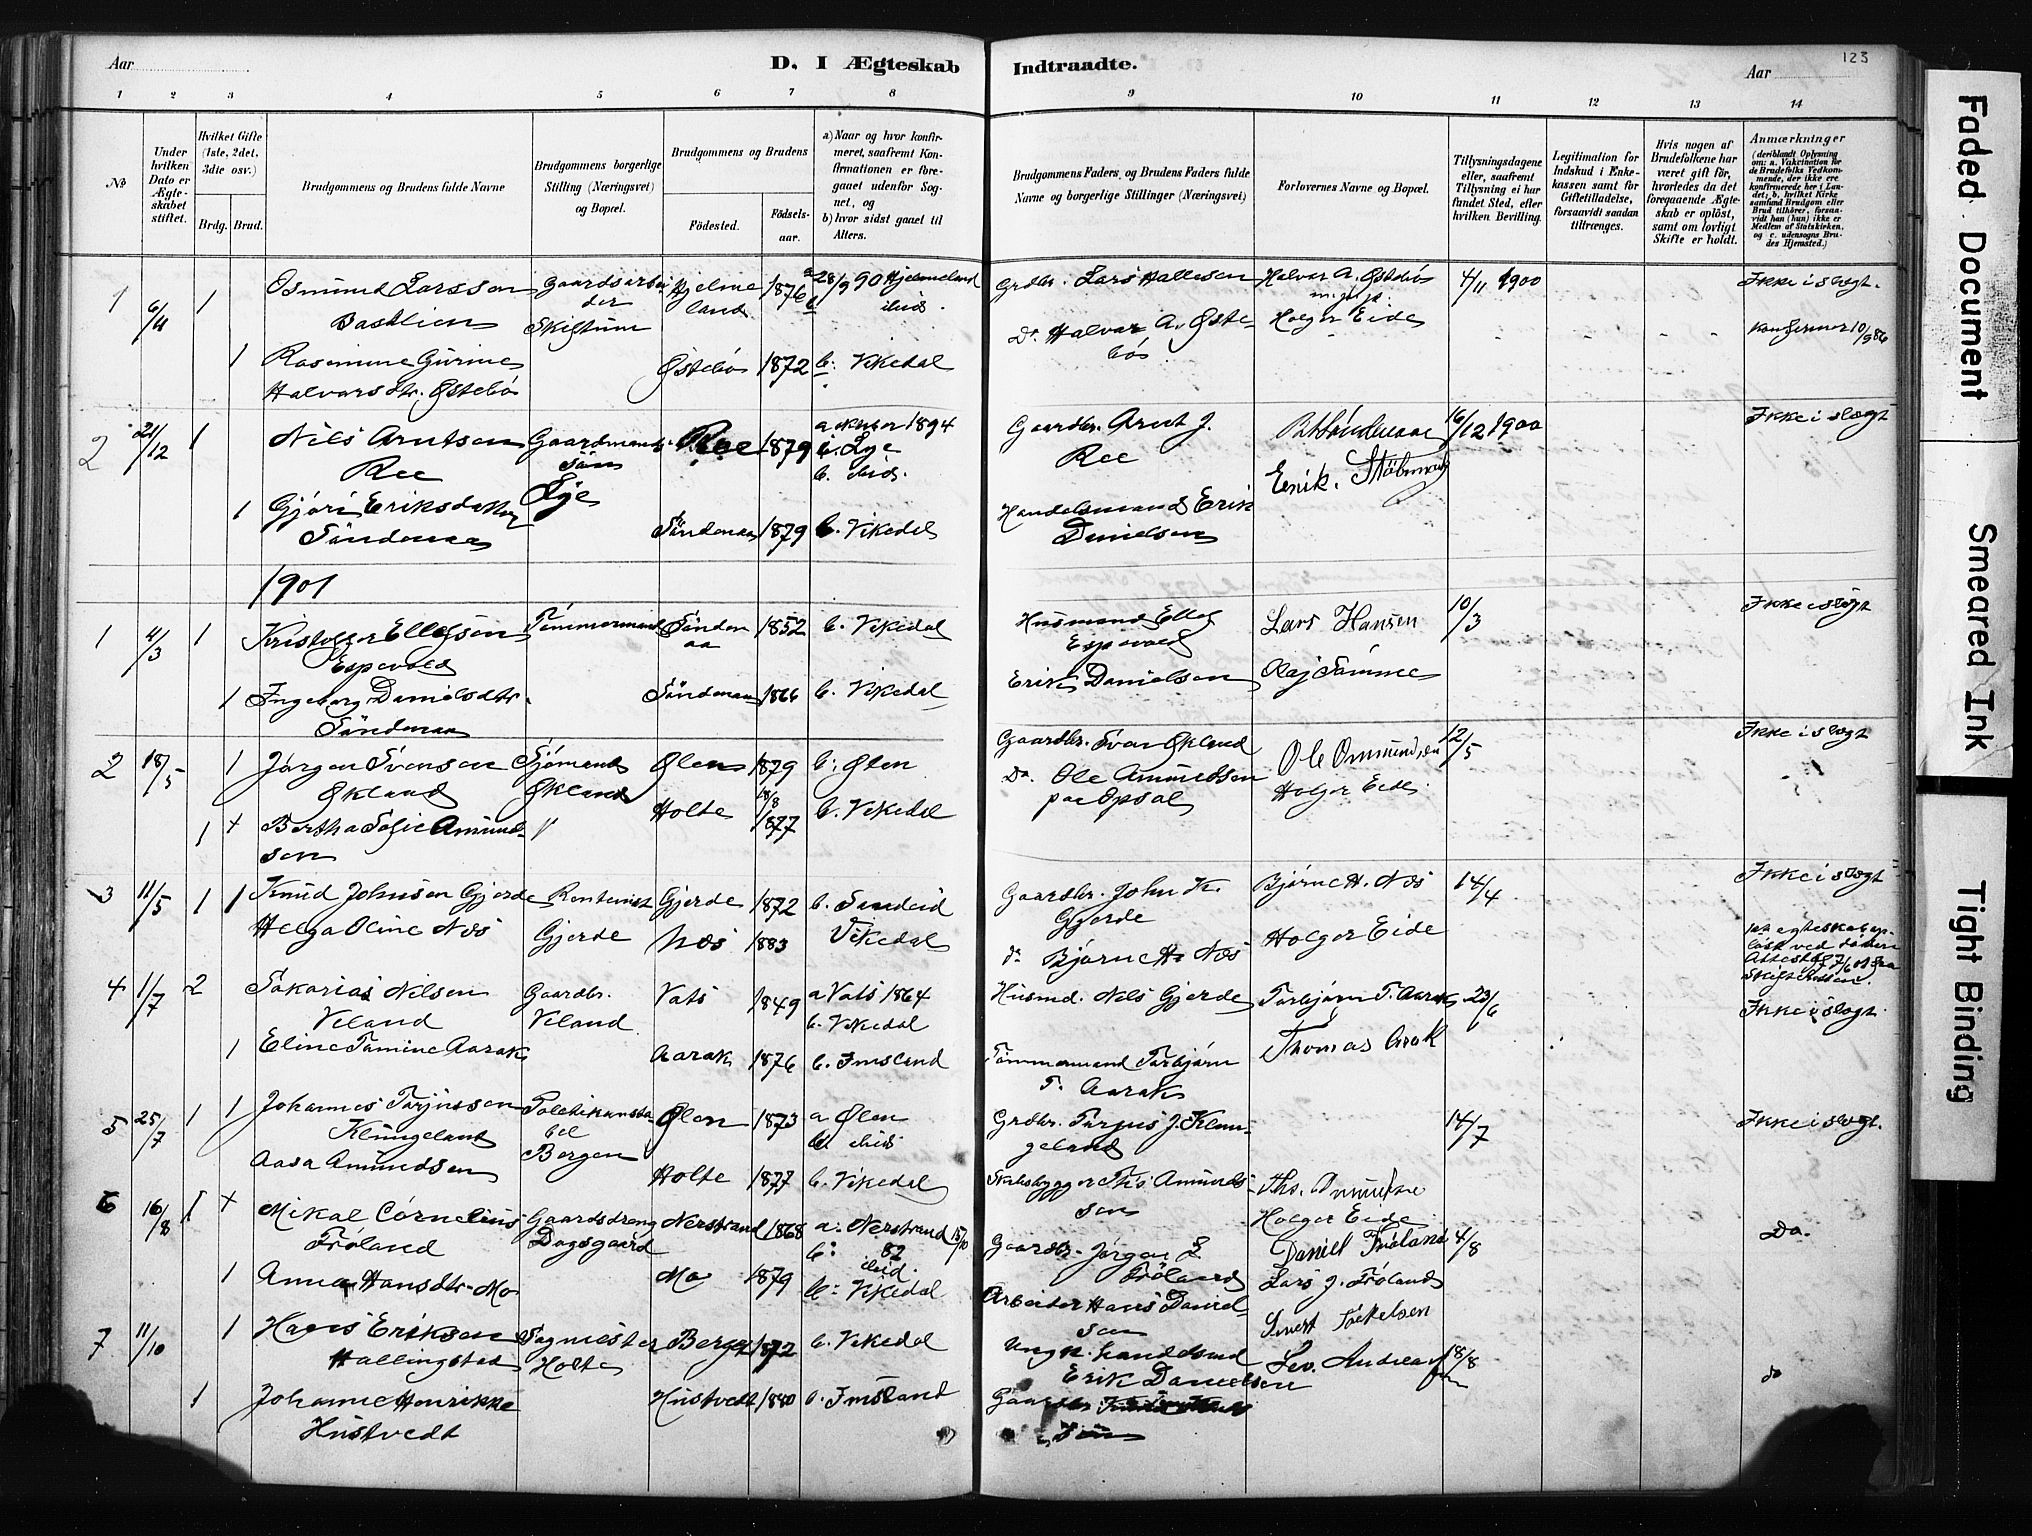 Aar
D. I Ægteskab
Indtraadte.
Aar
123
1 2 3 4 5 6 7 8 9 10 11 12 13 14
No
Under hvilken Dato er Ægteskabet stiftet.
Hvilket Gifte (1ste, 2det, 3die osv.)
Brdg. Brud.
Brudgommens og Brudens fulde Navne
Brudgommens borgerlige Stilling (Næringsvei) og Bopæl.
Brudgommens og Brudens
Fødested.
Fødselsaar.
a) Naar og hvor konfirmeret, saafremt Konfirmationen er foregaaet udenfor Sognet, og
b) hvor sidst gaaet til Alters.
Brudgommens Faders og Brudens Faders fulde Navne og borgerlige Stillinger (Næringsvei)
Forlovernes Navne og Bopæl.
Tillysningsdagene eller, saafremt Tillysning ei har fundet Sted, efter hvilken Bevilling.
Legitimation for Indskud i Enkekassen samt for Giftetilladelse, forsaavidt saadan tiltrænges.
Hvis nogen af Brudefolkene har været gift før, hvorledes da det foregaaende Ægteskab er opløst, samt om lovligt Skifte er holdt.
Anmærkninger
(deriblandt Oplysning om: a. Vakcination for de Brudefolks Vedkommende, der ikke ere konfirmerede her i Landet; b. hvilket Kirkesamfund Brudgom eller Brud tilhører, forsaavidt han (hun) ikke er Medlem af Statskirken, og c. udensogns Brudes Hjemsted.)
1 6/11 1 Osmund Larssen Gaardsarbei Hjelme 1876 a 28/9 90 Hjelmeland Grdbr. Lars Hallesen Halvor A. Østebø 4/11 1900 Ikke i slegt.
Bastlien der land b ibid. Holger Eide
Skiftun Do Halvar A. Østebø Konfirmer 10/9 86
1 Rasmine Gurine Østebø 1872 b. Vikedal
Halvarsdtr. Østebø
2 21/12 1 Nils Arntsen Gaardmands Ree 1879 a 1894 Gaardbr. Arnt J. 16/12 1900 Ikke i slegt
Ree søn i Lye Ree
Lye b. ibid. Erik
1 Gjøri Eriksdatter Handelsmand Erik
Søndenaa Søndenaa 1879 b. Vikedal Danielsen
1901
1 4/3 1 Kristoffer Ellefsen Tømmermand Sønden 1852 b. Vikedal Husmand Ellef Lars Hansen 10/3 Ikke i slegt
Espevold aa Espevold
1 Ingeborg Danielsdtr. Søndenaa 1866 b. Vikedal Erik Danielsen
Søndenaa
2 18/5 1 Jørgen Svensen Sjømand Ølen 1879 b. Ølen Gaardbr. Sven Økland Ole Omundsen 12/5 Ikke i slegt
Økland Økland 18/8 Do. Ole Amundsen Holger Eide
1 + Bertha Sofie Amund- Holte 1877 b. Vikedal paa Opsal
sen
3 11/5 1 1 Knud Johnsen Gjerde Rentenist Gjerde 1872 b. Sandeid Gaardbr. John K. Bjørne H. Næs 14/4 Ikke i slegt
Helga Oline Næs Gjerde Næs 1883 Vikedal Gjerde Holger Eide
do Bjørne H. Næs
1st egteskab op-
løst ved
Attest 7/6 01 fra
4 1/7 2 Sakarias Nilsen Gaardbr. Vats 1849 a Vats 1864 Husmd. Nils Gjerde Torbjørn T. Aarak 23/6
Veland Veland b. Vikedal Ikke i slegt.
1 Eline Tomine Aarak Aarak 1876 b. Imsland Tømmermand Torbjørn Thomas Arak
T. Aarak
5 25/7 1 1 Johannes Torjussen Politikonsta- Ølen 1873 a Ølen Grdbr. Torjus J. Klun- 14/7 Ikke i slegt.
Klungelant bel b. ibid geland
Aasa Amundsen Bergen Holte 1877 b. Vikedal Skibsbygger Ths. Amund- Ths.
sen Holger Eide
6 16/8 1 + Mikal Cornelius Gaardsdreng Nerstrand 1868 a. Nerstrand 15/10 82 Gaardbr. Jørgen L. Daniel Frøland 4/8 Do.
Frøland Dagsgaard b. ibid. Frøland Lars J. Frøland
1 Anna Hansdtr. Mo Mo 1879 b. Vikedal Arbeider Hans Daniel-
sen
7 11/10 1 Hans Eriksen Sagmester Berge 1872 b. Vikedal Ungk. Landsmd 18/8 do
Hallingstad Holte Erik Danielsen
1 Johanne Henrikke Hustvedt 1880 b. Imsland Gaardbr.
Hustvedt
Faded Document
Smeared Ink
Tight Binding